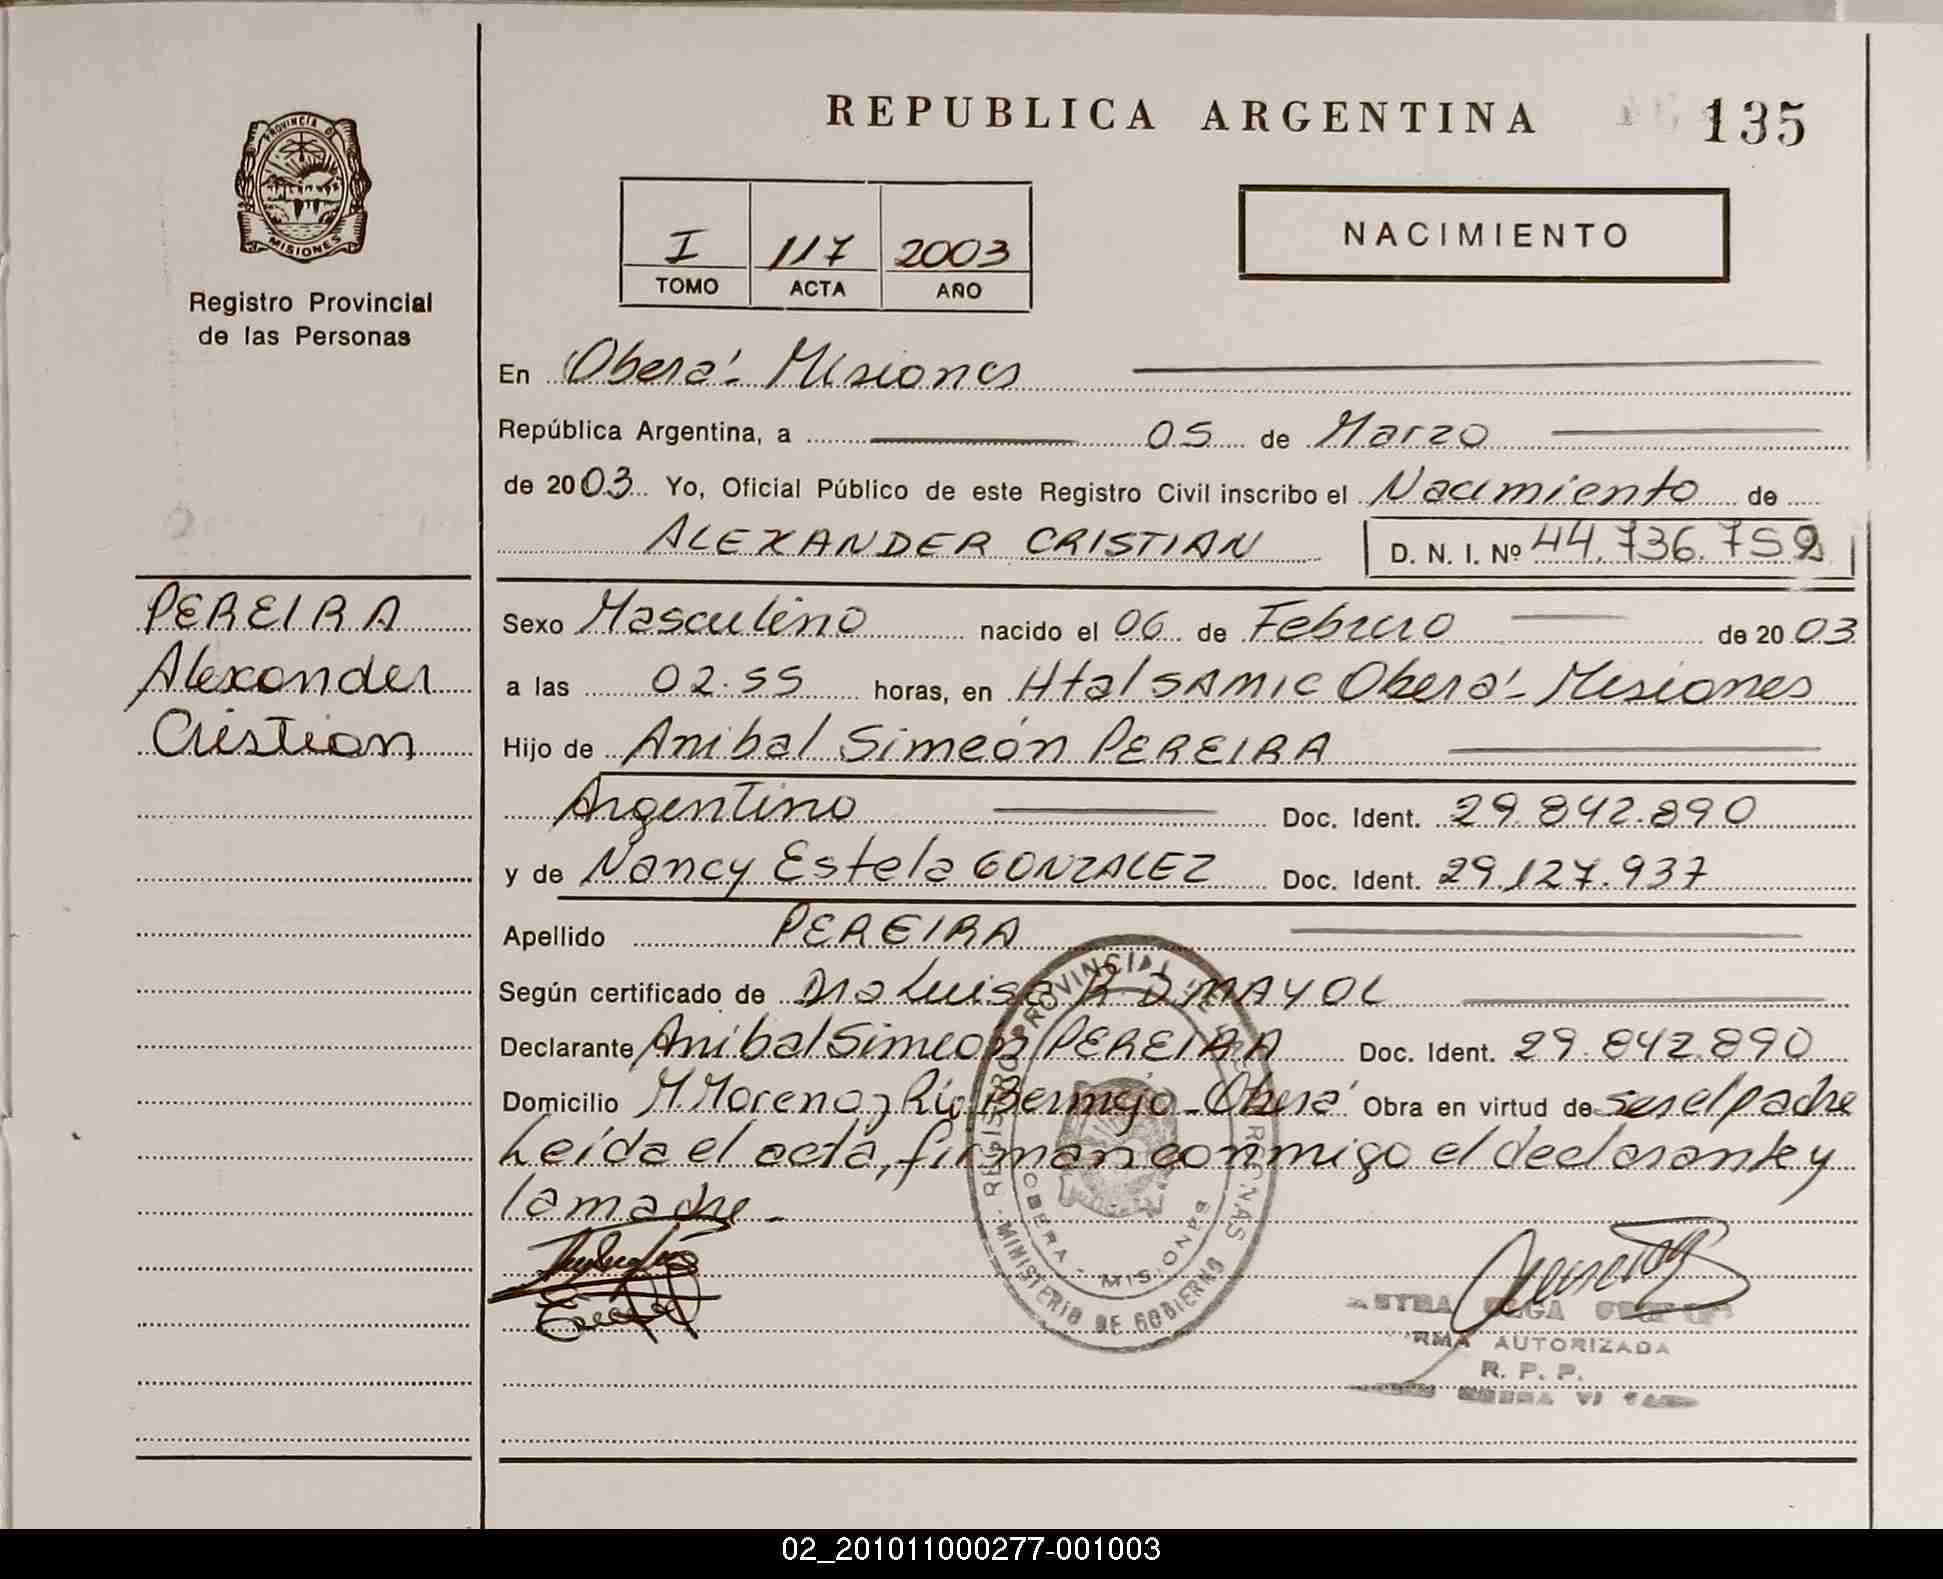 REPUBLICA ARGENTINA 135
PROVINCIA DE
MISIONES
Registro Provincial
de las Personas
I 117 2003
TOMO ACTA AÑO
NACIMIENTO
En Oberá - Misiones
República Argentina, a 05 de Marzo
de 2003 Yo, Oficial Público de este Registro Civil inscribo el Nacimiento de
ALEXANDER CRISTIAN D. N. I. Nº 44.736.759
PEREIRA
Alexander
Cristian
Sexo Masculino nacido el 06 de Febrero de 2003
a las 02.55 horas, en Htal SAMIC Oberá - Misiones
Hijo de Anibal Simeón PEREIRA
Argentino Doc. Ident. 29.842.890
y de Nancy Estela GONZALEZ Doc. Ident. 29.127.937
Apellido PEREIRA
Según certificado de Dra Luisa R D MAYOL
Declarante Anibal Simeón PEREIRA Doc. Ident. 29.842.890
Domicilio M. Moreno y Río Bermejo - Oberá Obra en virtud de ser el padre
Leída el acta, firman conmigo el declarante y
la madre -
REGISTRO PROVINCIAL DE LAS PERSONAS
MINISTERIO DE GOBIERNO
OBERA - MISIONES
OLGA
AUTORIZADA
R. P. P.
02_201011000277-001003